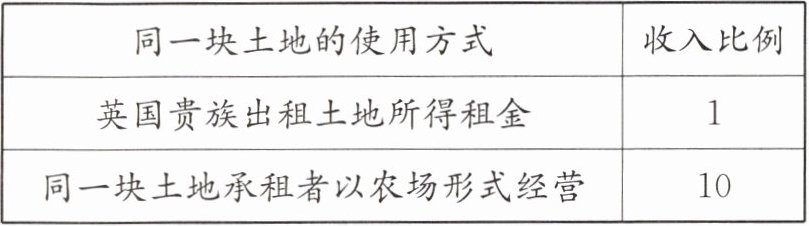 同一块土地的使用方式 收入比例
英国贵族出租土地所得租金 1
同一块土地承租者以农场形式经营 10